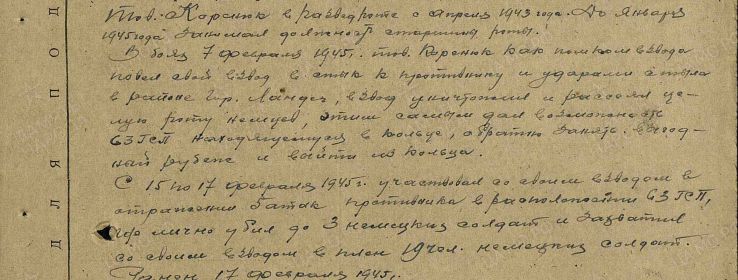 Тов. Коренюк в разведроте с апреля 1943 года. До января
1945 года занимал должность старшины роты.
В боях 7 февраля 1945 г. тов. Коренюк как помком взвода
повел свой взвод в стык к противнику и ударами с тыла
в районе гор. Ландек, взвод уничтожил и рассеял це-
лую роту немцев, этим самым дал возможность
63 ГСП находящемуся в кольце, обратно занять выгод-
ный рубеж и выйти из кольца.
С 15 по 17 февраля 1945 г. участвовал со своим взводом в
отражении 6 атак противника в расположении 63 ГСП,
где лично убил до 3 немецких солдат и захватил
со своим взводом в плен 19 чел. немецких солдат.
Ранен 17 февраля 1945 г.
ДЛЯ ПОД